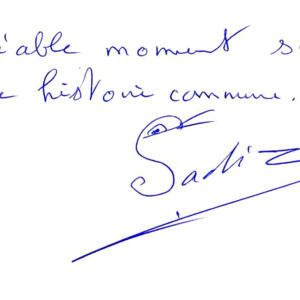 éable moment s
e histoire commune.
Sadi